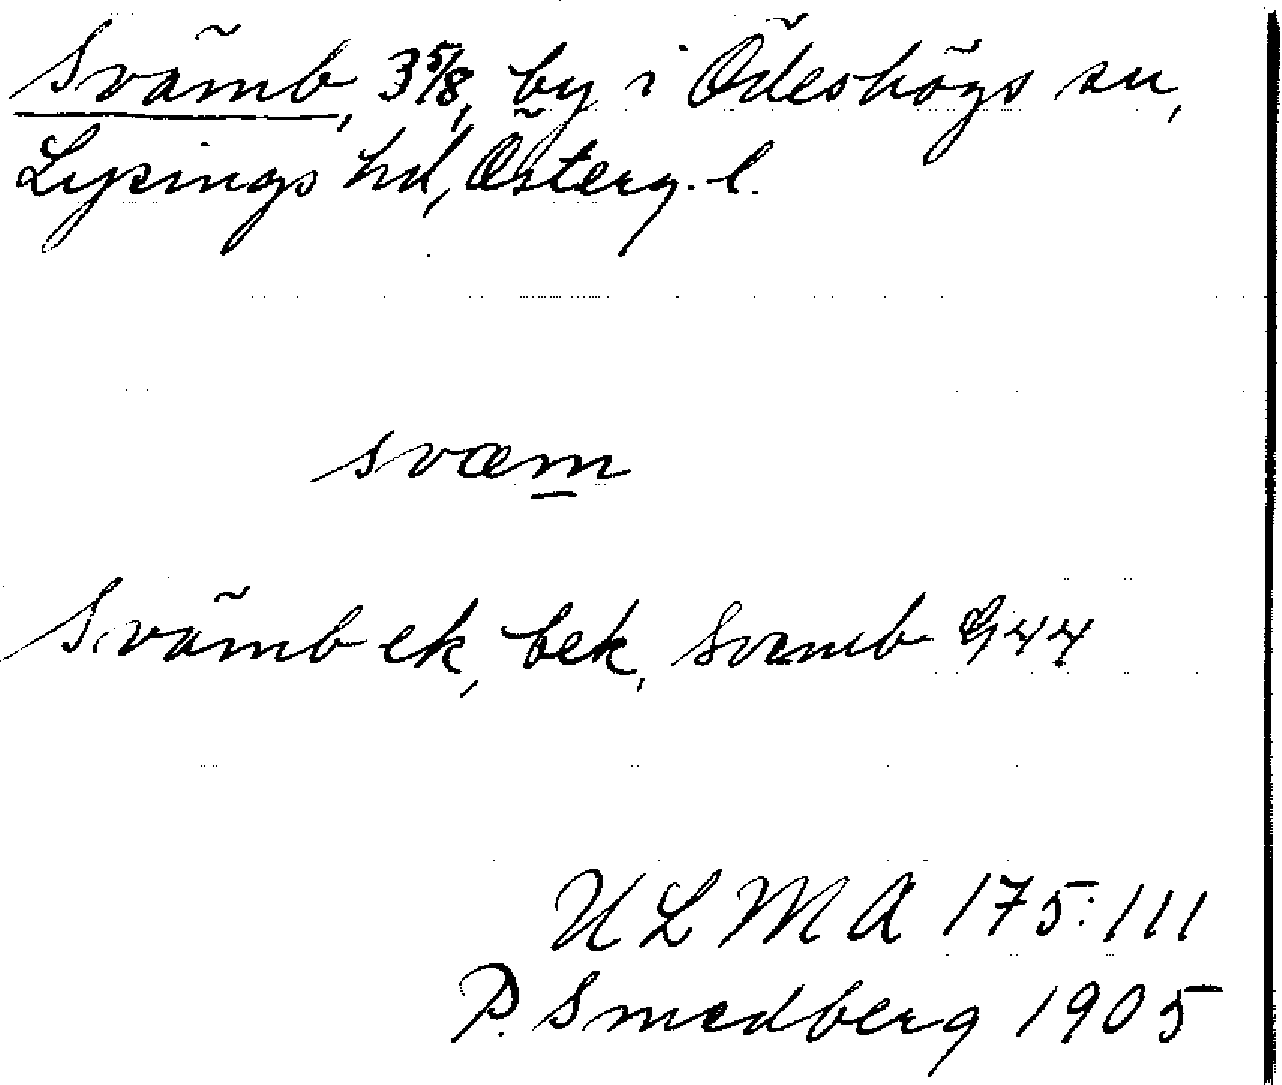 Svämb, 3 5/8, by i Ödeshögs sn,
Lysings hd, Österg. l.
svæm
Svämb ek, bek, Svemb G44
ULMA 175:111
P. Smedberg 1905